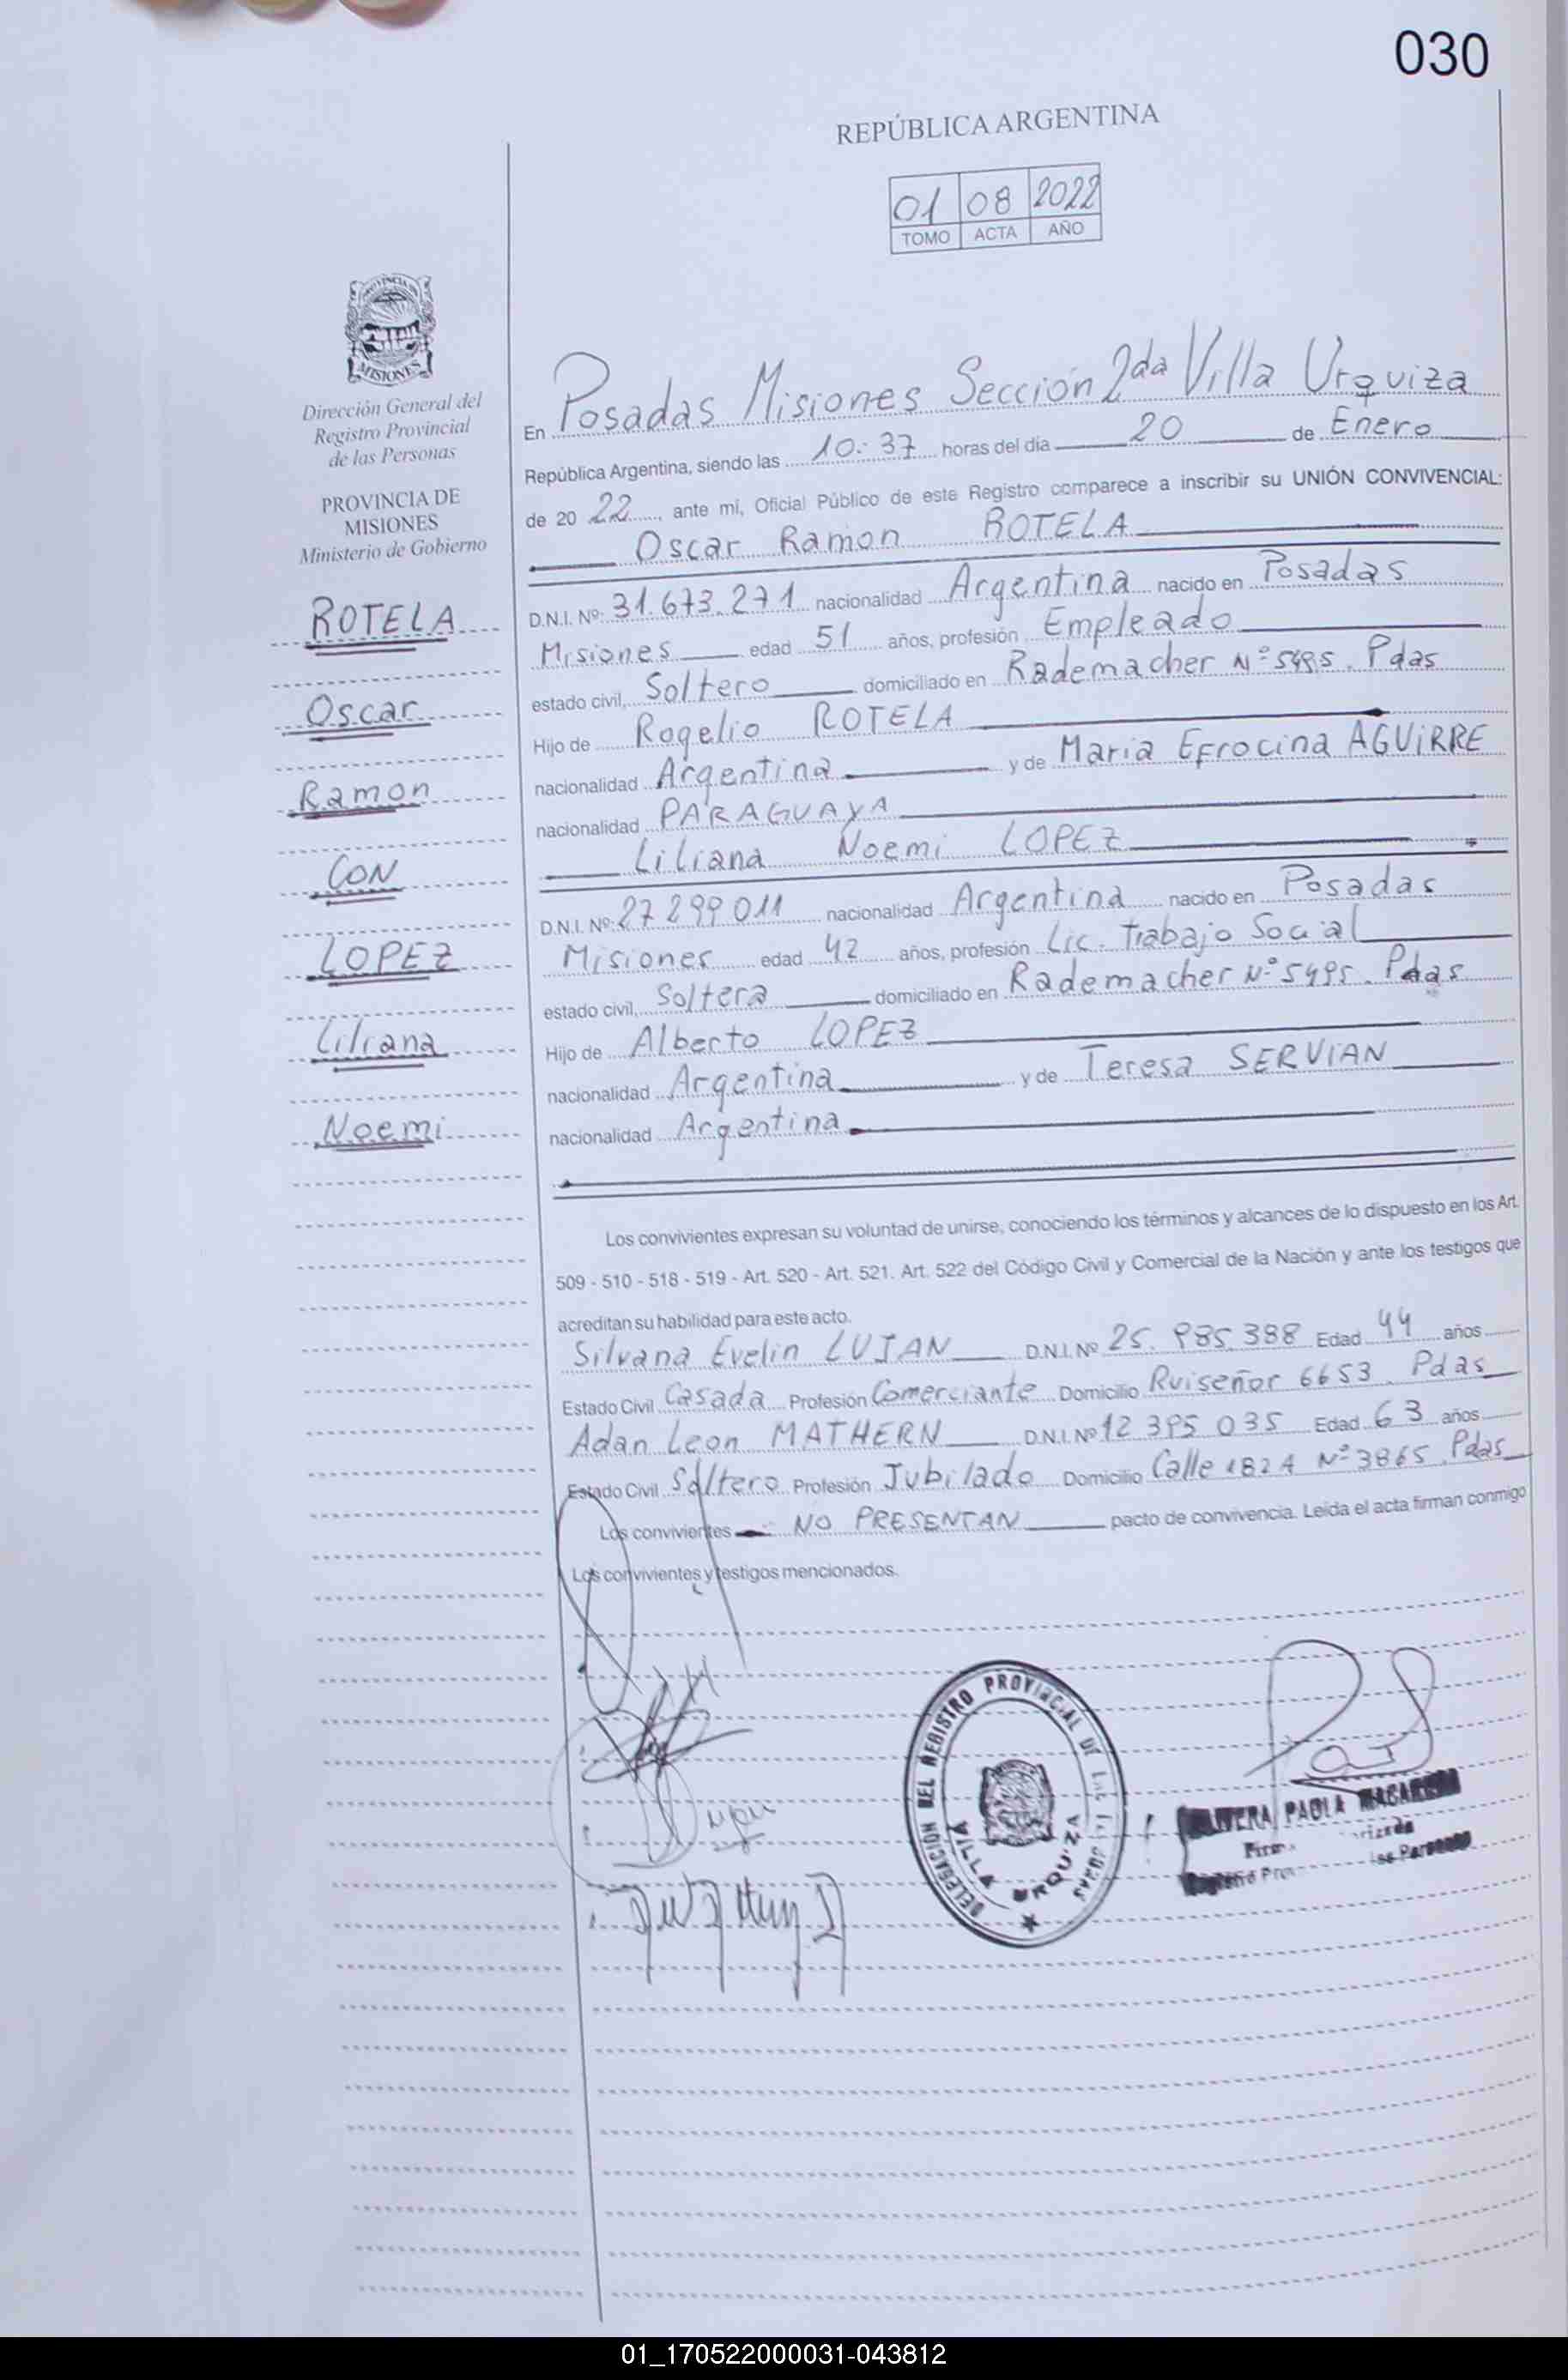 030
REPÚBLICA ARGENTINA
01 08 2022
TOMO ACTA AÑO
PROVINCIA DE
MISIONES
Dirección General del
Registro Provincial
de las Personas
PROVINCIA DE
MISIONES
Ministerio de Gobierno
ROTELA
Oscar
Ramon
CON
LOPEZ
Liliana
Noemi
En Posadas Misiones Sección 2da Villa Urquiza
República Argentina, siendo las 10:37 horas del día 20 de Enero
de 2022, ante mí, Oficial Público de este Registro comparece a inscribir su UNIÓN CONVIVENCIAL:
Oscar Ramon ROTELA
D.N.I. Nº: 31.673.271 nacionalidad Argentina nacido en Posadas
Misiones edad 51 años, profesión Empleado
estado civil, Soltero domiciliado en Rademacher Nº 5495. Pdas
Hijo de Rogelio ROTELA
nacionalidad Argentina y de Maria Efrocina AGUIRRE
nacionalidad PARAGUAYA
Liliana Noemi LOPEZ
D.N.I. Nº: 27 299 011 nacionalidad Argentina nacido en Posadas
Misiones edad 42 años, profesión Lic. Trabajo Social
estado civil, Soltera domiciliado en Rademacher Nº 5495. Pdas
Hijo de Alberto LOPEZ
nacionalidad Argentina y de Teresa SERVIAN
nacionalidad Argentina
Los convivientes expresan su voluntad de unirse, conociendo los términos y alcances de lo dispuesto en los Art.
509 - 510 - 518 - 519 - Art. 520 - Art. 521. Art. 522 del Código Civil y Comercial de la Nación y ante los testigos que
acreditan su habilidad para este acto.
Silvana Evelin LUJAN D.N.I. Nº 25.985.388 Edad 44 años
Estado Civil Casada Profesión Comerciante Domicilio Ruiseñor 6653. Pdas
Adan Leon MATHERN D.N.I. Nº 12 395 035 Edad 63 años
Estado Civil Soltero Profesión Jubilado Domicilio Calle 182 A Nº 3865. Pdas
Los convivientes NO PRESENTAN pacto de convivencia. Leída el acta firman conmigo
Los convivientes y testigos mencionados.
DELEGACIÓN DEL REGISTRO PROVINCIAL DE LAS PERSONAS
VILLA URQUIZA
PAOLA MACARENA
las Personas
01_170522000031-043812